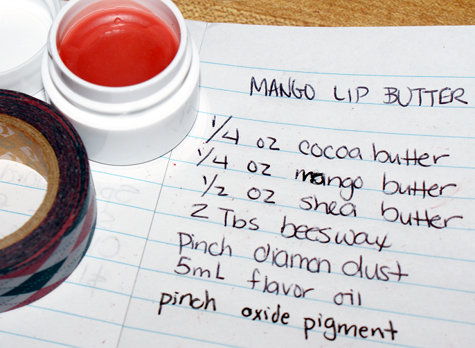 MANGO LIP BUTTER
1/4 oz cocoa butter
1/4 oz mango butter
1/2 oz shea butter
2 Tbs beeswax
Pinch diamon dust
5mL flavor oil
pinch oxide pigment